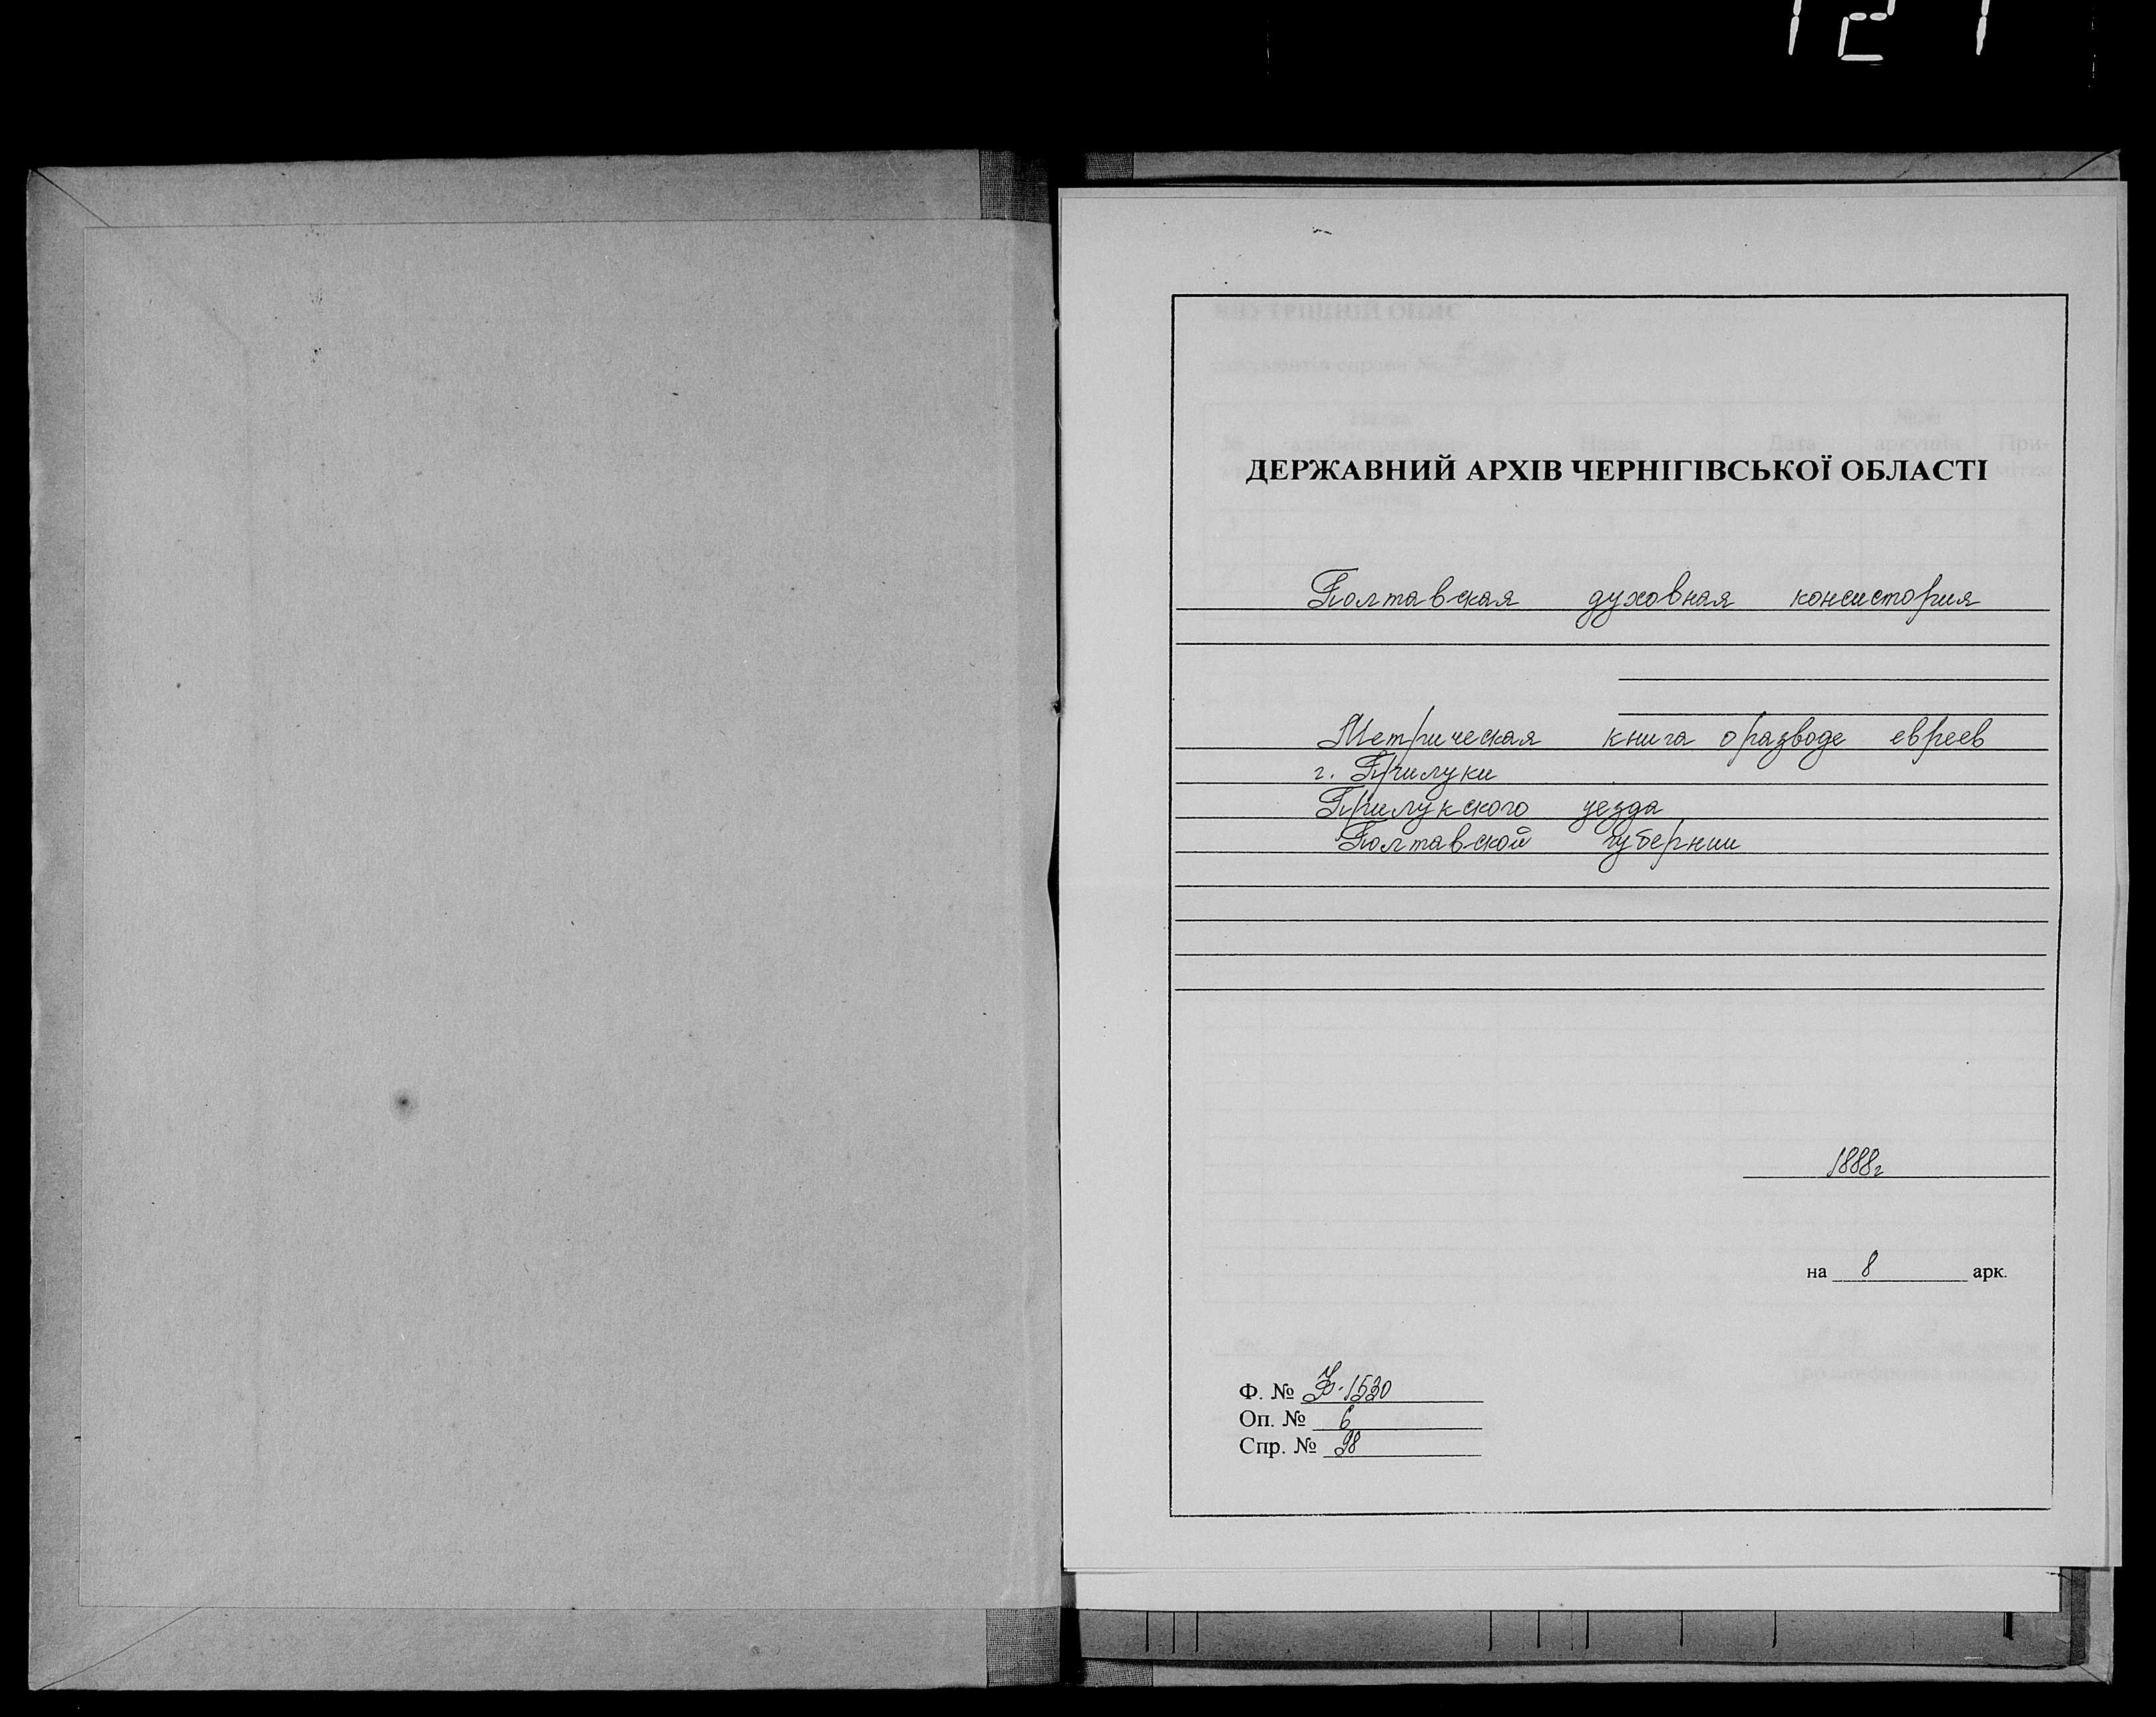 121
ДЕРЖАВНИЙ АРХІВ ЧЕРНІГІВСЬКОЇ ОБЛАСТІ
Полтавская духовная консистория
Метрическая книга о разводе евреев
г. Прилуки
Прилукского уезда
Полтавской губернии
1888г
на 8 арк.
Ф. № 1530
Оп. № 6
Спр. № 98